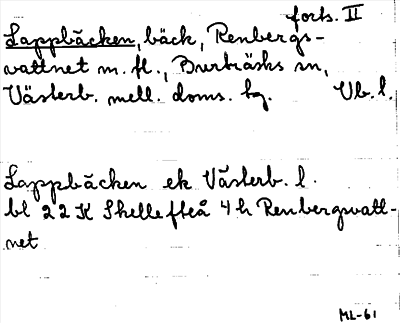 forts. II
Lappbäcken, bäck, Renbergs-
vattnet m. fl., Burträsks sn,
Västerb. mell. doms. tg. Vb. l.
Lappbäcken ek Västerb. l.
bl 22 K Skellefteå 4 h Renbergsvatt-
net
ML-61